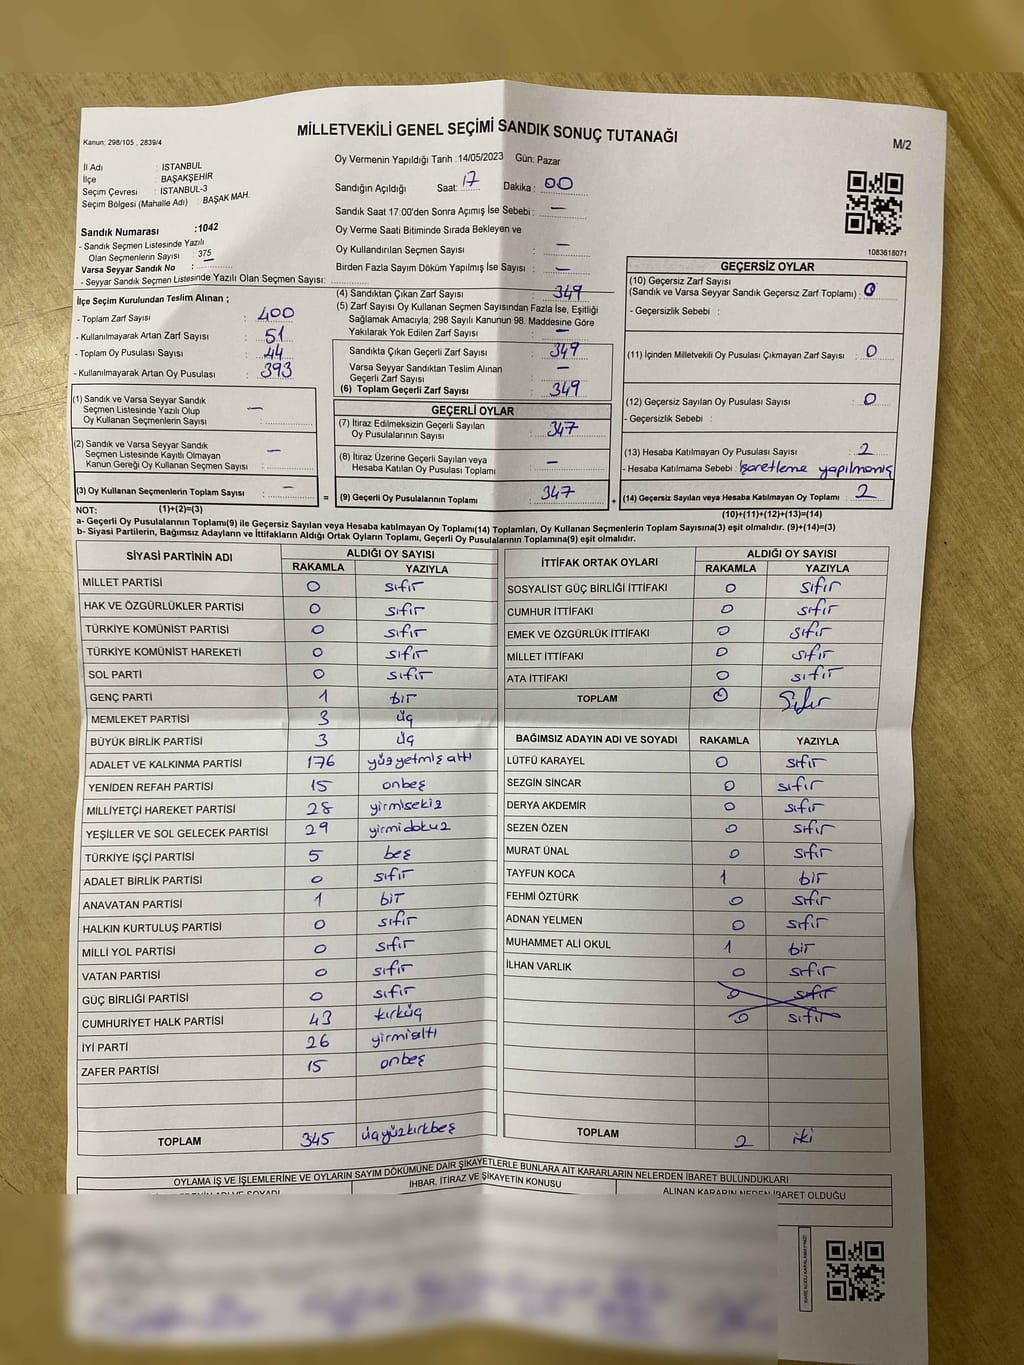 MİLLETVEKİLİ GENEL SEÇİMİ SANDIK SONUÇ TUTANAĞI
Kanun: 298/105 , 2839/4
M/2
İl Adı : İSTANBUL
İlçe : BAŞAKŞEHİR
Seçim Çevresi : İSTANBUL-3
Seçim Bölgesi (Mahalle Adı) : BAŞAK MAH.
Sandık Numarası :1042
- Sandık Seçmen Listesinde Yazılı
Olan Seçmenlerin Sayısı : 375
Varsa Seyyar Sandık No :
- Seyyar Sandık Seçmen Listesinde Yazılı Olan Seçmen Sayısı:
Oy Vermenin Yapıldığı Tarih :14/05/2023 Gün: Pazar
Sandığın Açıldığı Saat: 17 Dakika : 00
Sandık Saat 17:00'den Sonra Açımış İse Sebebi : —
Oy Verme Saati Bitiminde Sırada Bekleyen ve
Oy Kullandırılan Seçmen Sayısı : —
Birden Fazla Sayım Döküm Yapılmış İse Sayısı : —
1083618071
İlçe Seçim Kurulundan Teslim Alınan ;
- Toplam Zarf Sayısı : 400
- Kullanılmayarak Artan Zarf Sayısı : 51
- Toplam Oy Pusulası Sayısı : 44
- Kullanılmayarak Artan Oy Pusulası : 393
(1) Sandık ve Varsa Seyyar Sandık
Seçmen Listesinde Yazılı Olup
Oy Kullanan Seçmenlerin Sayısı : —
(2) Sandık ve Varsa Seyyar Sandık
Seçmen Listesinde Kayıtlı Olmayan
Kanun Gereği Oy Kullanan Seçmen Sayısı : —
(3) Oy Kullanan Seçmenlerin Toplam Sayısı : —
(4) Sandıktan Çıkan Zarf Sayısı : 349
(5) Zarf Sayısı Oy Kullanan Seçmen Sayısından Fazla İse, Eşitliği
Sağlamak Amacıyla; 298 Sayılı Kanunun 98. Maddesine Göre
Yakılarak Yok Edilen Zarf Sayısı : —
Sandıkta Çıkan Geçerli Zarf Sayısı : 349
Varsa Seyyar Sandıktan Teslim Alınan
Geçerli Zarf Sayısı : —
(6) Toplam Geçerli Zarf Sayısı : 349
GEÇERLİ OYLAR
(7) İtiraz Edilmeksizin Geçerli Sayılan
Oy Pusulalarının Sayısı : 347
(8) İtiraz Üzerine Geçerli Sayılan veya
Hesaba Katılan Oy Pusulası Toplamı : —
= (9) Geçerli Oy Pusulalarının Toplamı : 347
GEÇERSİZ OYLAR
(10) Geçersiz Zarf Sayısı
(Sandık ve Varsa Seyyar Sandık Geçersiz Zarf Toplamı) : 0
- Geçersizlik Sebebi :
(11) İçinden Milletvekili Oy Pusulası Çıkmayan Zarf Sayısı : 0
(12) Geçersiz Sayılan Oy Pusulası Sayısı : 0
- Geçersizlik Sebebi :
(13) Hesaba Katılmayan Oy Pusulası Sayısı : 2
- Hesaba Katılmama Sebebi : işaretleme yapılmamış
+ (14) Geçersiz Sayılan veya Hesaba Katılmayan Oy Toplamı : 2
NOT: (1)+(2)=(3)
(10)+(11)+(12)+(13)=(14)
a- Geçerli Oy Pusulalarının Toplamı(9) ile Geçersiz Sayılan veya Hesaba katılmayan Oy Toplamı(14) Toplamları, Oy Kullanan Seçmenlerin Toplam Sayısına(3) eşit olmalıdır. (9)+(14)=(3)
b- Siyasi Partilerin, Bağımsız Adayların ve İttifakların Aldığı Ortak Oyların Toplamı, Geçerli Oy Pusulalarının Toplamına(9) eşit olmalıdır.
SİYASİ PARTİNİN ADI ALDIĞI OY SAYISI
RAKAMLA YAZIYLA
MİLLET PARTİSİ 0 sıfır
HAK VE ÖZGÜRLÜKLER PARTİSİ 0 sıfır
TÜRKİYE KOMÜNİST PARTİSİ 0 sıfır
TÜRKİYE KOMÜNİST HAREKETİ 0 sıfır
SOL PARTİ 0 sıfır
GENÇ PARTİ 1 bir
MEMLEKET PARTİSİ 3 üç
BÜYÜK BİRLİK PARTİSİ 3 üç
ADALET VE KALKINMA PARTİSİ 176 yüzyetmiş altı
YENİDEN REFAH PARTİSİ 15 onbeş
MİLLİYETÇİ HAREKET PARTİSİ 28 yirmisekiz
YEŞİLLER VE SOL GELECEK PARTİSİ 29 yirmidokuz
TÜRKİYE İŞÇİ PARTİSİ 5 beş
ADALET BİRLİK PARTİSİ 0 sıfır
ANAVATAN PARTİSİ 1 bir
HALKIN KURTULUŞ PARTİSİ 0 sıfır
MİLLİ YOL PARTİSİ 0 sıfır
VATAN PARTİSİ 0 sıfır
GÜÇ BİRLİĞİ PARTİSİ 0 sıfır
CUMHURİYET HALK PARTİSİ 43 kırküç
İYİ PARTİ 26 yirmialtı
ZAFER PARTİSİ 15 onbeş
TOPLAM 345 üçyüzkırkbeş
İTTİFAK ORTAK OYLARI ALDIĞI OY SAYISI
RAKAMLA YAZIYLA
SOSYALİST GÜÇ BİRLİĞİ İTTİFAKI 0 sıfır
CUMHUR İTTİFAKI 0 sıfır
EMEK VE ÖZGÜRLÜK İTTİFAKI 0 sıfır
MİLLET İTTİFAKI 0 sıfır
ATA İTTİFAKI 0 sıfır
TOPLAM 0 Sıfır
BAĞIMSIZ ADAYIN ADI VE SOYADI RAKAMLA YAZIYLA
LÜTFÜ KARAYEL 0 sıfır
SEZGİN SİNCAR 0 sıfır
DERYA AKDEMİR 0 sıfır
SEZEN ÖZEN 0 sıfır
MURAT ÜNAL 0 sıfır
TAYFUN KOCA 1 bir
FEHMİ ÖZTÜRK 0 sıfır
ADNAN YELMEN 0 sıfır
MUHAMMET ALİ OKUL 1 bir
İLHAN VARLIK 0 sıfır
0 sıfır
0 sıfır
TOPLAM 2 iki
OYLAMA İŞ VE İŞLEMLERİNE VE OYLARIN SAYIM DÖKÜMÜNE DAİR ŞİKAYETLERLE BUNLARA AİT KARARLARIN NELERDEN İBARET BULUNDUKLARI
İHBAR, İTİRAZ VE ŞİKAYETİN KONUSU
ALINAN KARARIN NEDEN İBARET OLDUĞU